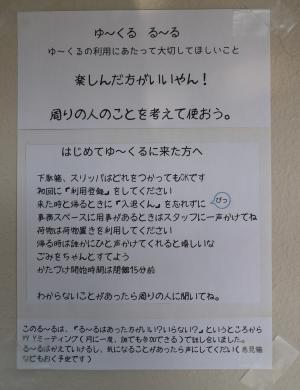 ゆ～くる る～る
ゆ～くるの利用にあたって大切してほしいこと
楽しんだ方がいいやん！
周りの人のことを考えて使おう。
はじめてゆ～くるに来た方へ
下駄箱、スリッパはどれをつかってもOKです
初回に『利用登録』をしてください
来た時と帰るときに『入退くん』を忘れずに ぴっ
事務スペースに用事があるときはスタッフに一声かけてね
荷物は荷物置きを利用してください
帰る時は誰かにひと声かけてくれると嬉しいな
ごみをちゃんとすてよう
かたづけ開始時間は閉館15分前
わからないことがあったら周りの人に聞いてね。
このる～るは、『る～るはあった方がいい？いらない？』というところから
YYミーティング（月に一度、誰でも参加できる）で話し合いました。
る～るはかえていけるし、気になることがあったら声にしてください（意見箱
などもおく予定です）